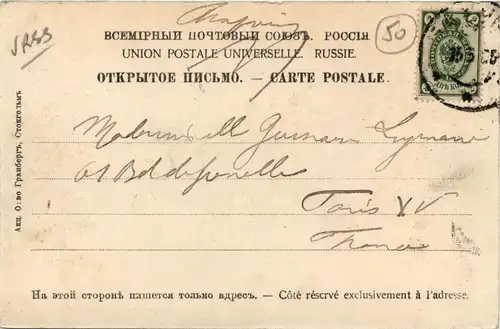 URSS
50
ВСЕМІРНЫЙ ПОЧТОВЫЙ СОЮЗЪ. РОССІЯ
UNION POSTALE UNIVERSELLE. RUSSIE.
ОТКРЫТОЕ ПИСЬМО. — CARTE POSTALE.
Mademoiselle
Paris XV
France
Акц. О:во Гранбергъ, Стокгольмъ
На этой сторонѣ пишется только адресъ. — Côté résérvé exclusivement à l'adresse.